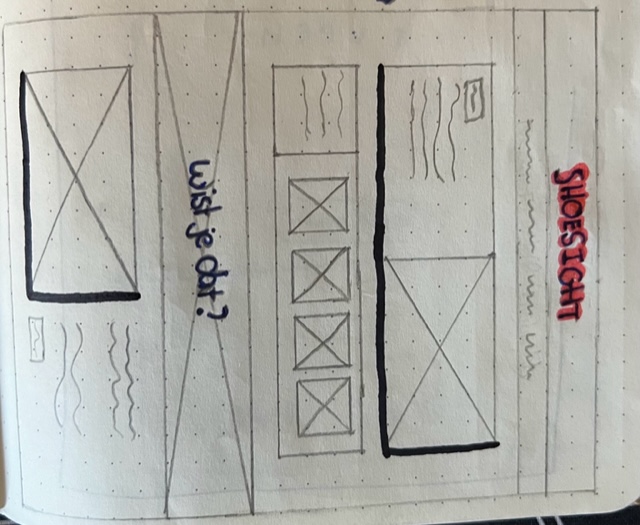 SHOESIGHT
wist je dat?